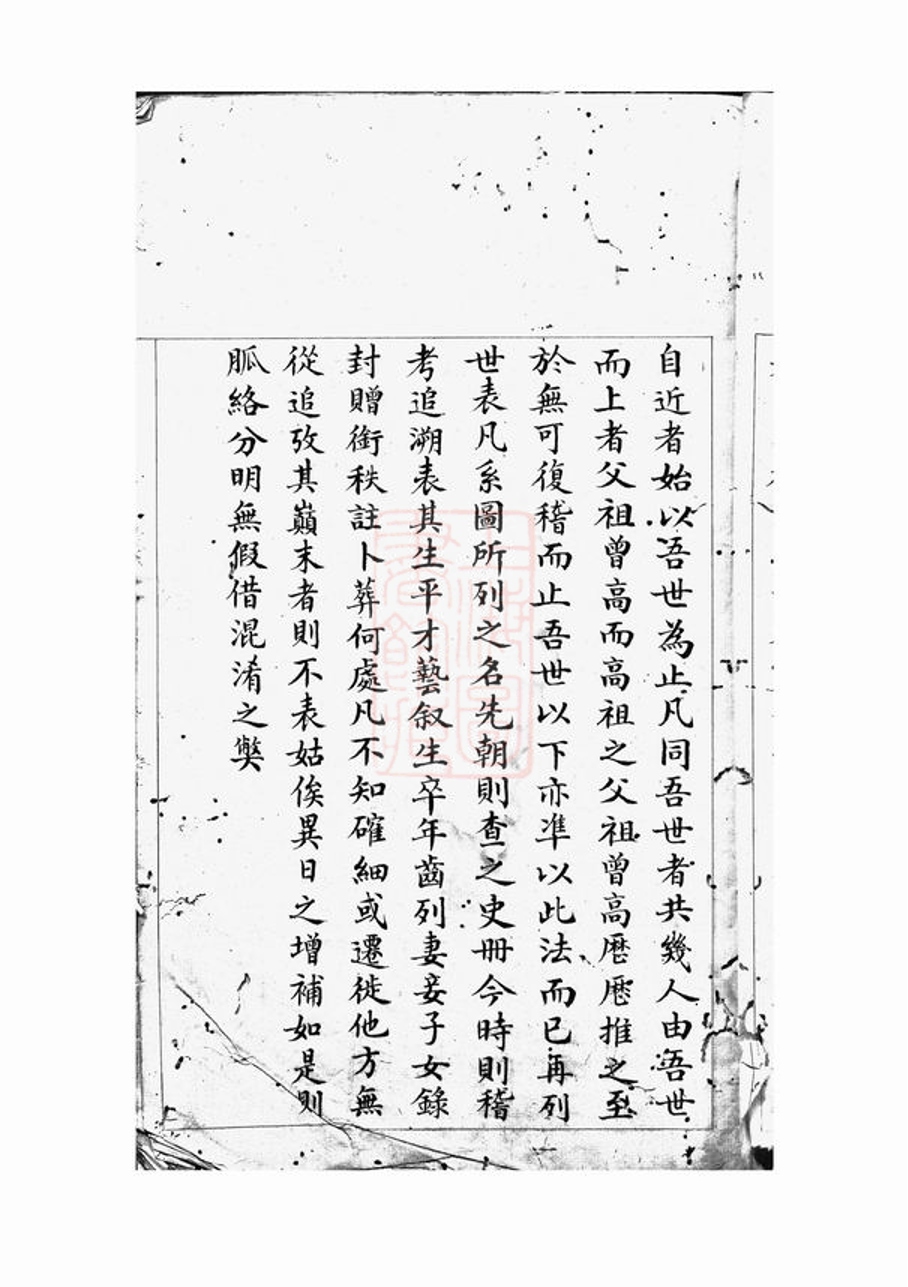 自近者始以吾世為止凡同吾世者共幾人由吾世
而上者父祖曾高而高祖之父祖曾高厯厯推之至
於無可復稽而止吾世以下亦準以此法而已再列
世表凡系圖所列之名先朝則查之史冊今時則稽
考追溯表其生平才藝叙生卒年齒列妻妾子女錄
封贈銜秩註卜葬何處凡不知確細或遷徙他方無
從追攷其巔末者則不表姑俟異日之增補如是則
脈絡分明無假借混淆之獘